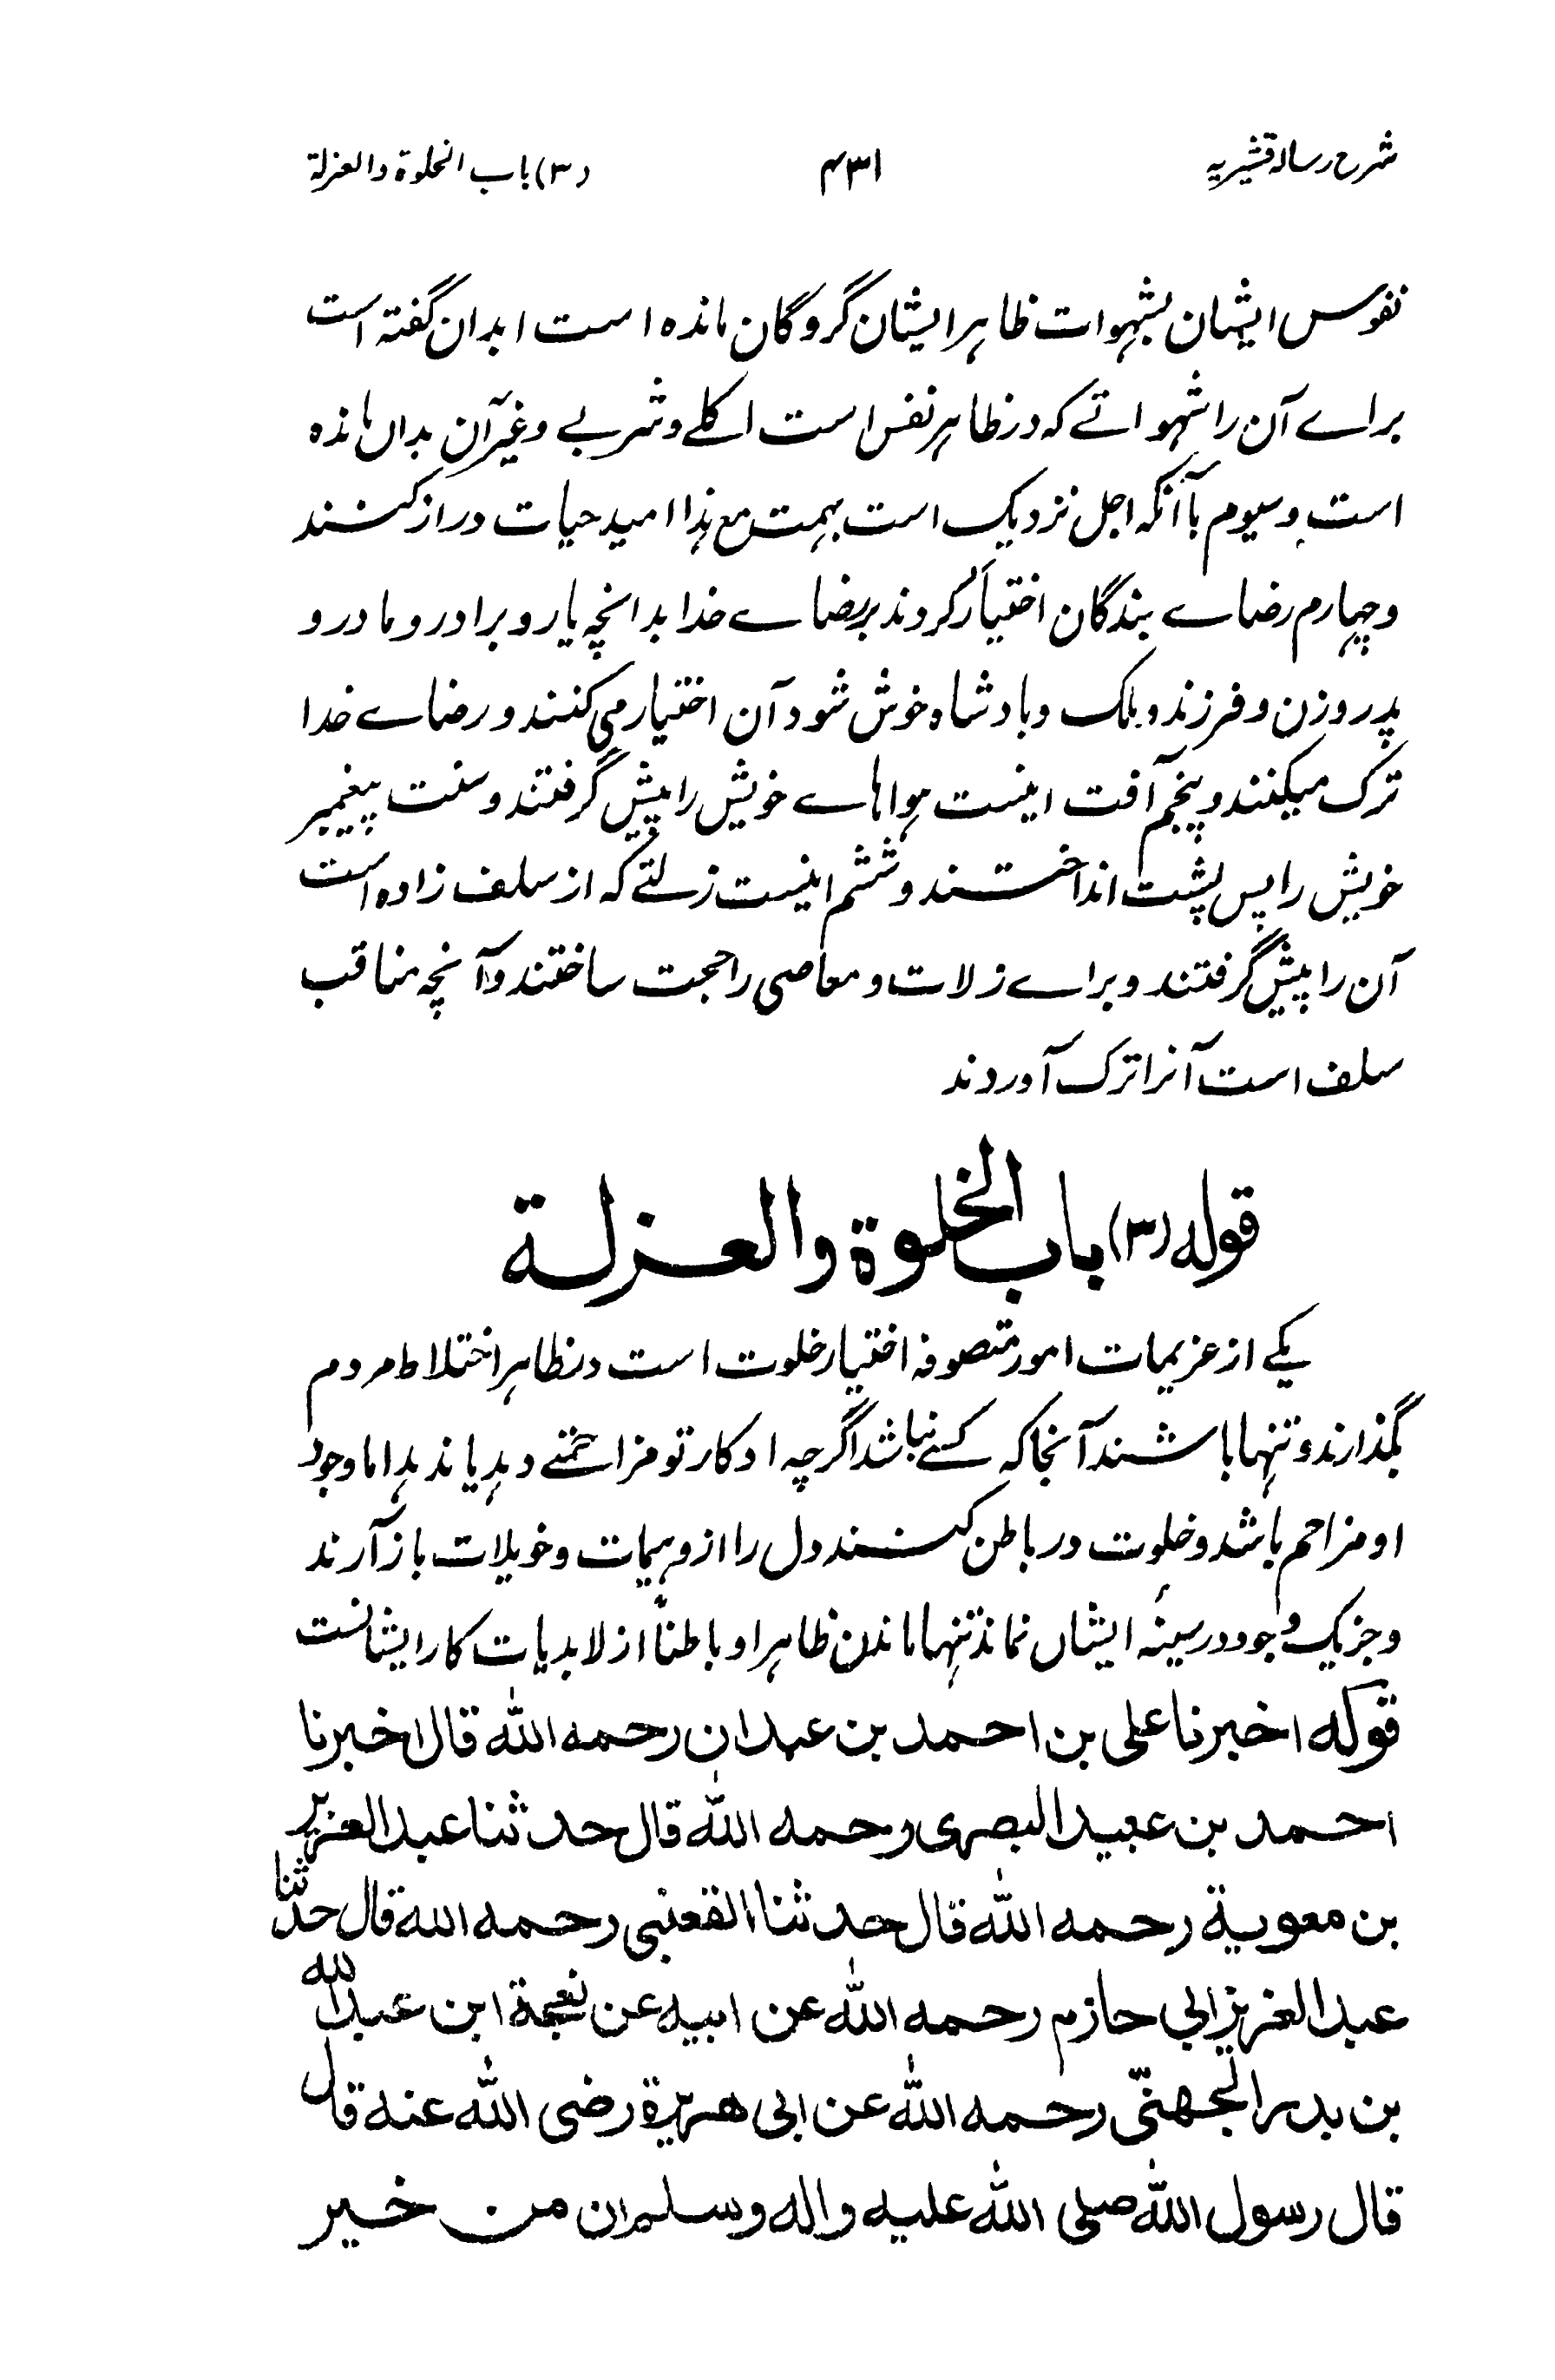 شرح رسالہ قشیریہ ۴۳۱ (۳) باب الخلوة والعزلة
نفوس ایشان بشہوات ظاہر ایشان گروگان ماندہ است ابدان گفتہ است
براے آن را شہواتے کہ در ظاہر نفس است اکلے و شربے و غیر آن بداں ماندہ
است و سیوم باآنکہ اجل نزدیک است بہمت مع ہذا امید حیات دراز کنند
و چہارم رضاے بندگان اختیار کردند بر رضاے خدا بدانچہ یار و برادر و مادر و
پدر و زن و فرزند و ملک و بادشاہ خوش شود آن اختیار می کنند و رضاے خدا
ترک میکنند و پنجم آفت اینست ہواہاے خویش را پیش گرفتند و سنت پیغمبر
خویش را پس پشت انداختند و ششم اینست زلتے کہ از سلف زادہ است
آن را پیش گرفتند و براے زلات و معاصی را حجت ساختند و آنچہ مناقب
سلف است آنرا ترک آوردند
قوله (۳) باب الخلوة والعزلة
یکے از عزیمات امور متصوفہ اختیار خلوت است در ظاہر اختلاط مردم
بگذارند و تنہا باشند آنجا کہ کسے نباشد اگرچہ او کار تو مزاحمتے دہد یا ندہد اما وجود
او مزاحم باشد و خلوت در باطن کنند دل را از وہمیات و خویلات باز آرند
و جز یک وجود در سینۂ ایشاں نماند تنہا ماندن ظاہرا و باطناً از لابدیات کار ایشانست
قوله اخبرنا علی بن احمد بن عبدان رحمه الله قال اخبرنا
احمد بن عبید البصری رحمه الله قال حدثنا عبد العزیز
بن معویة رحمه الله قال حدثنا القعنبی رحمه الله قال حدثنا
عبد العزیز ابی حازم رحمه الله عن ابیه عن نعجة ابن عبد الله
بن بدر الجهنّی رحمه الله عن ابی هریرة رضی الله عنه قال
قال رسول الله صلی الله علیه واله وسلم ان من خیر